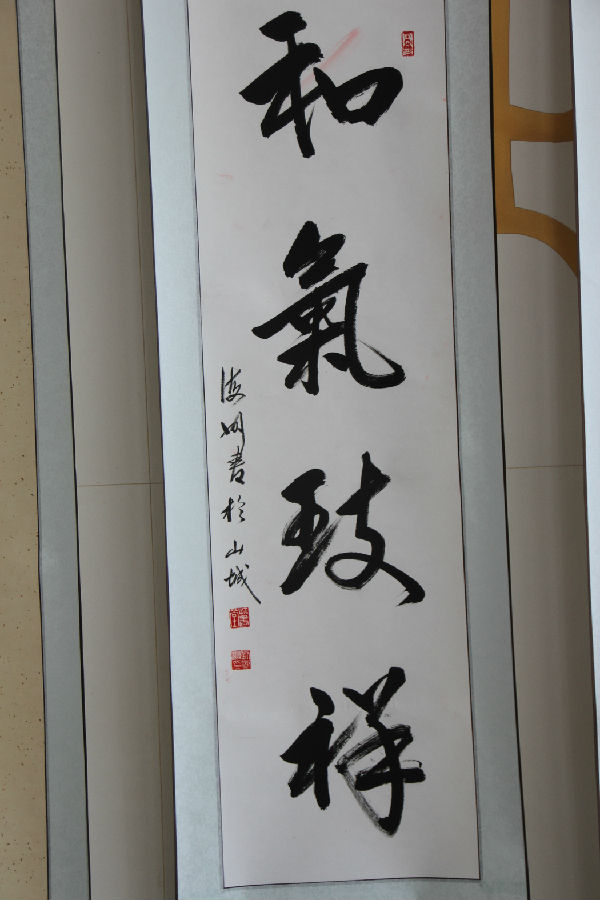 和氣致祥
海州書於山城